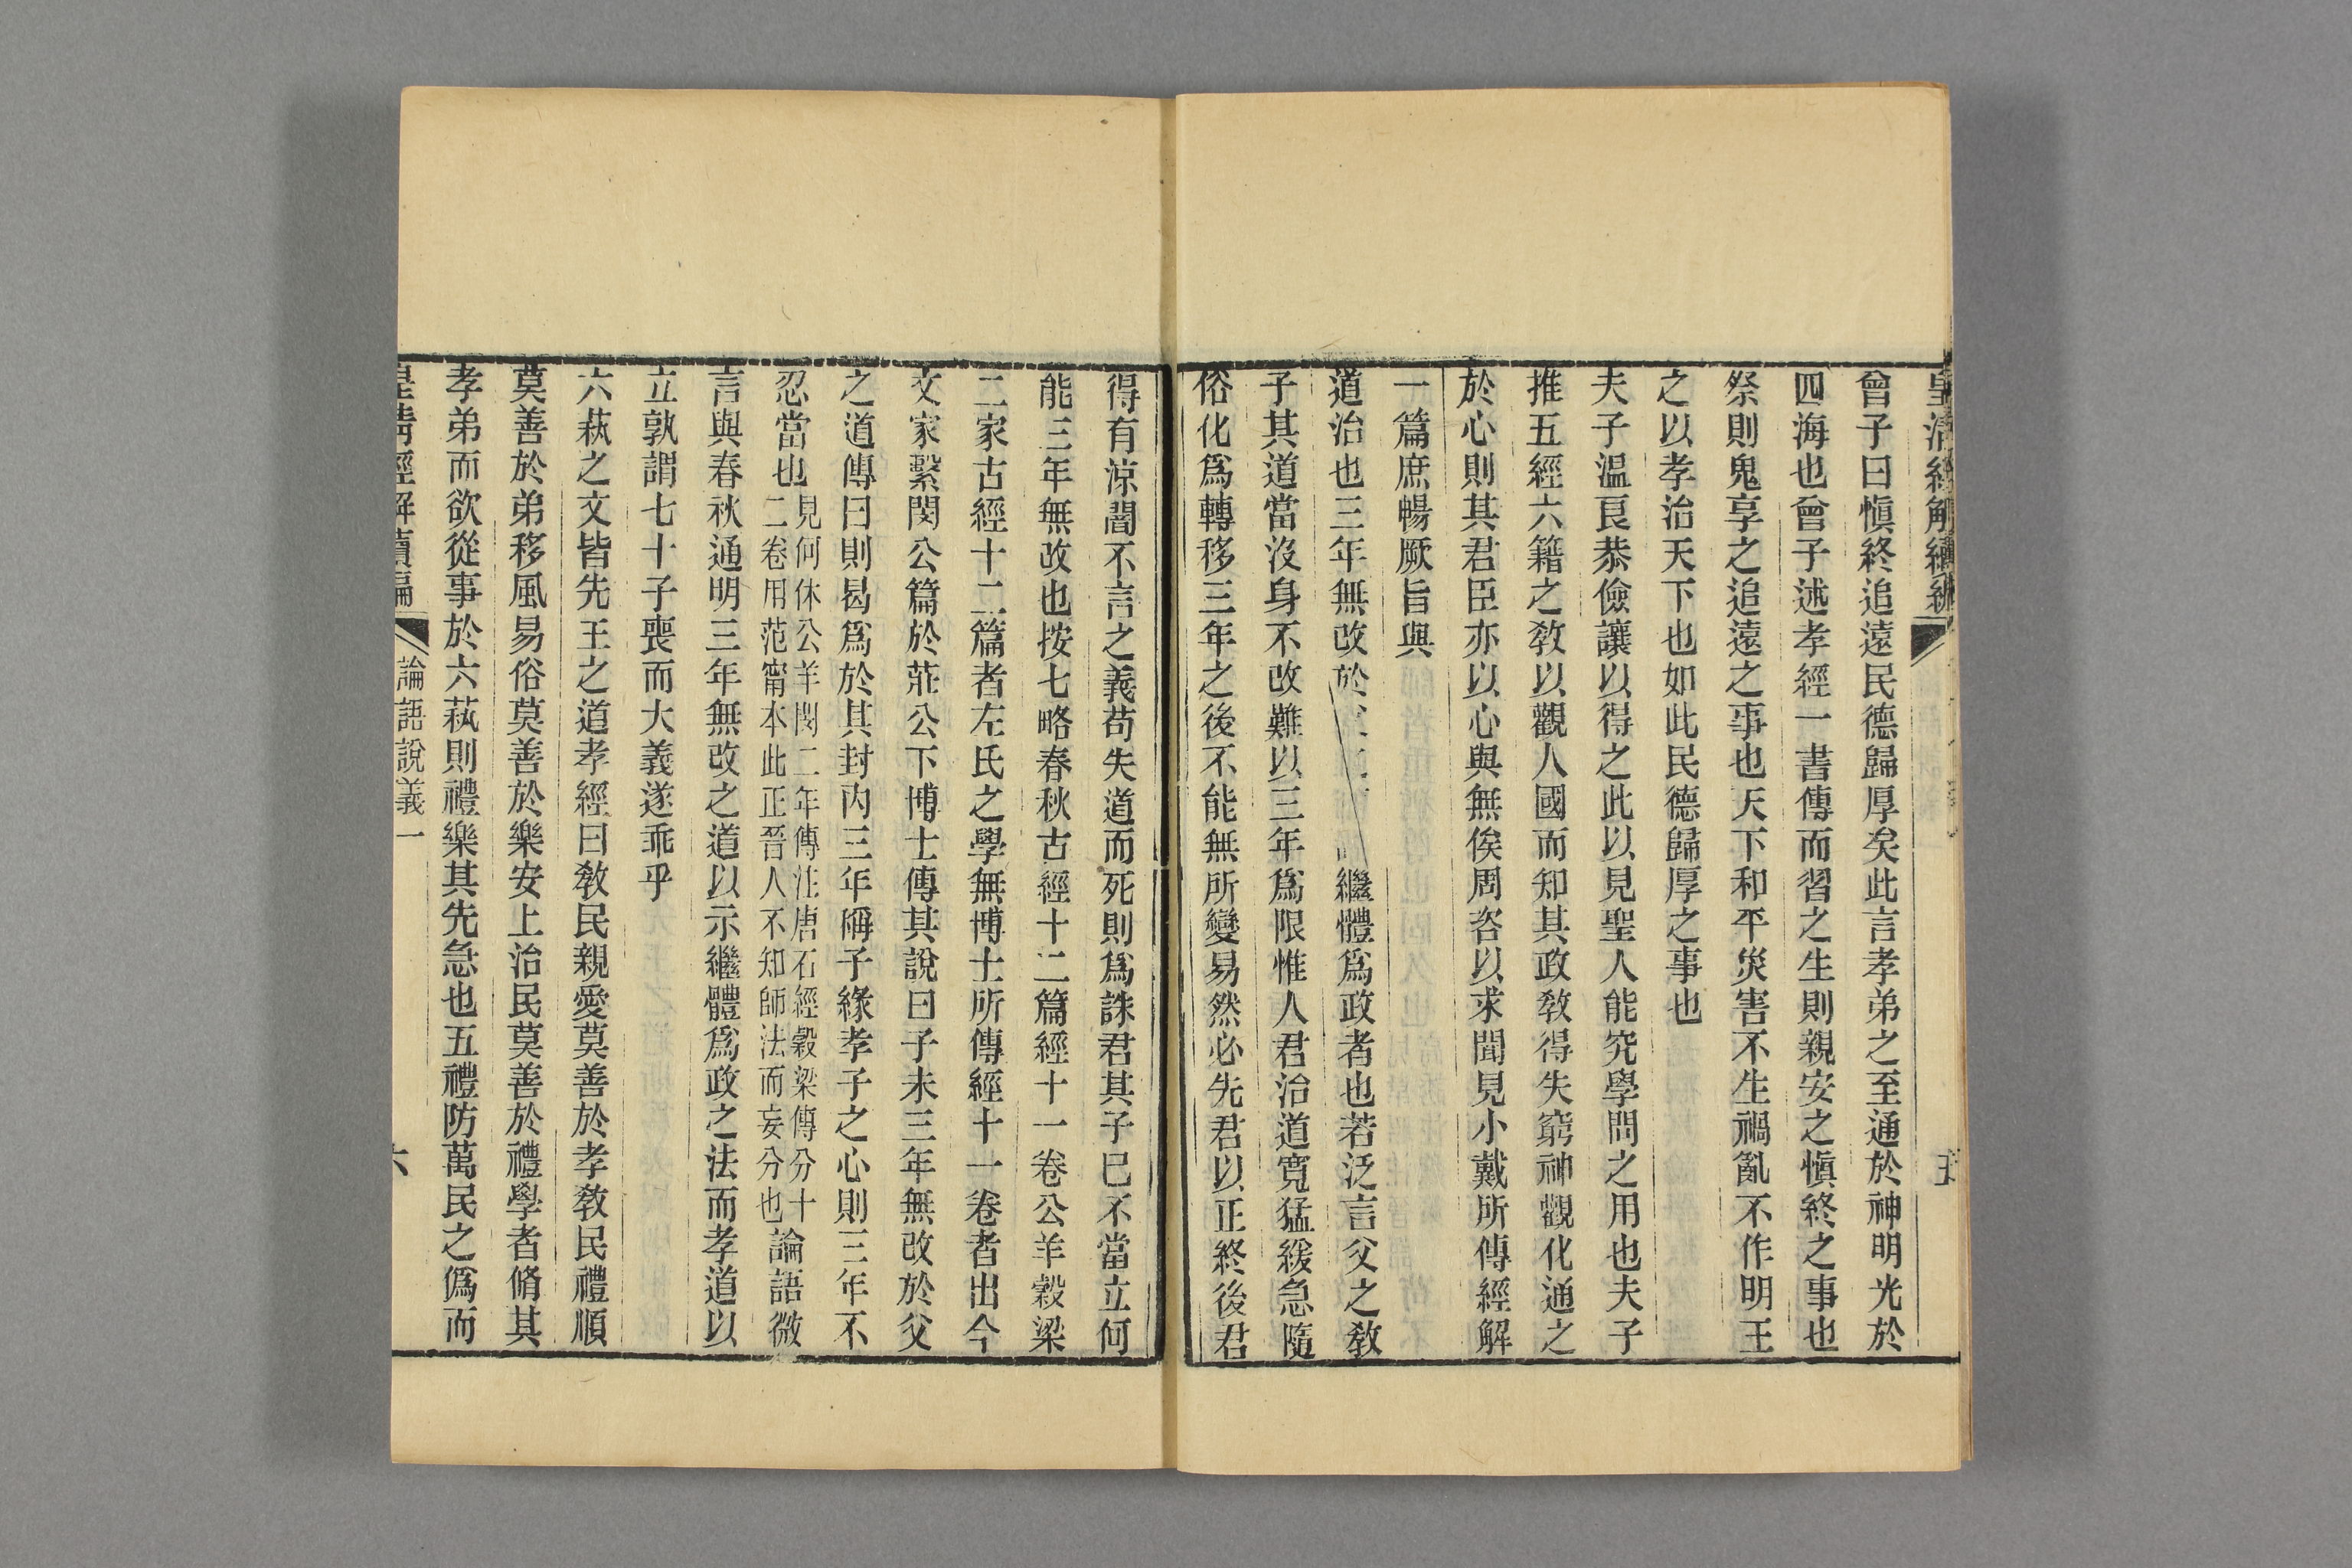 皇清經解續編
五
曾子曰愼終追遠民德歸厚矣此言孝弟之至通於神明光於
四海也曾子述孝經一書傳而習之生則親安之愼終之事也
祭則鬼享之追遠之事也天下和平災害不生禍亂不作明王
之以孝治天下也如此民德歸厚之事也
夫子温良恭儉讓以得之此以見聖人能究學問之用也夫子
推五經六籍之敎以觀人國而知其政敎得失窮神觀化通之
於心則其君臣亦以心與無俟周咨以求聞見小戴所傳經解
一篇庶暢厥旨與
道治也三年無改於繼體爲政者也若泛言父之敎
子其道當沒身不改難以三年爲限惟人君治道寬猛緩急隨
俗化爲轉移三年之後不能無所變易然必先君以正終後君
得有涼闇不言之義苟失道而死則爲誅君其子已不當立何
能三年無改也按七略春秋古經十二篇經十一卷公羊穀梁
二家古經十二篇者左氏之學無博士所傳經十一卷者出今
文家繫閔公篇於莊公下博士傳其說曰子未三年無改於父
之道傳曰則曷爲於其封内三年稱子緣孝子之心則三年不
忍當也見何休公羊閔二年傳注唐石經穀梁傳分十
二卷用范甯本此正晉人不知師法而妄分也論語微
言與春秋通明三年無改之道以示繼體爲政之法而孝道以
立孰謂七十子喪而大義遂乖乎
六蓺之文皆先王之道孝經曰敎民親愛莫善於孝敎民禮順
莫善於弟移風易俗莫善於樂安上治民莫善於禮學者脩其
孝弟而欲從事於六蓺則禮樂其先急也五禮防萬民之僞而
皇清經解續編
論語說義一
六